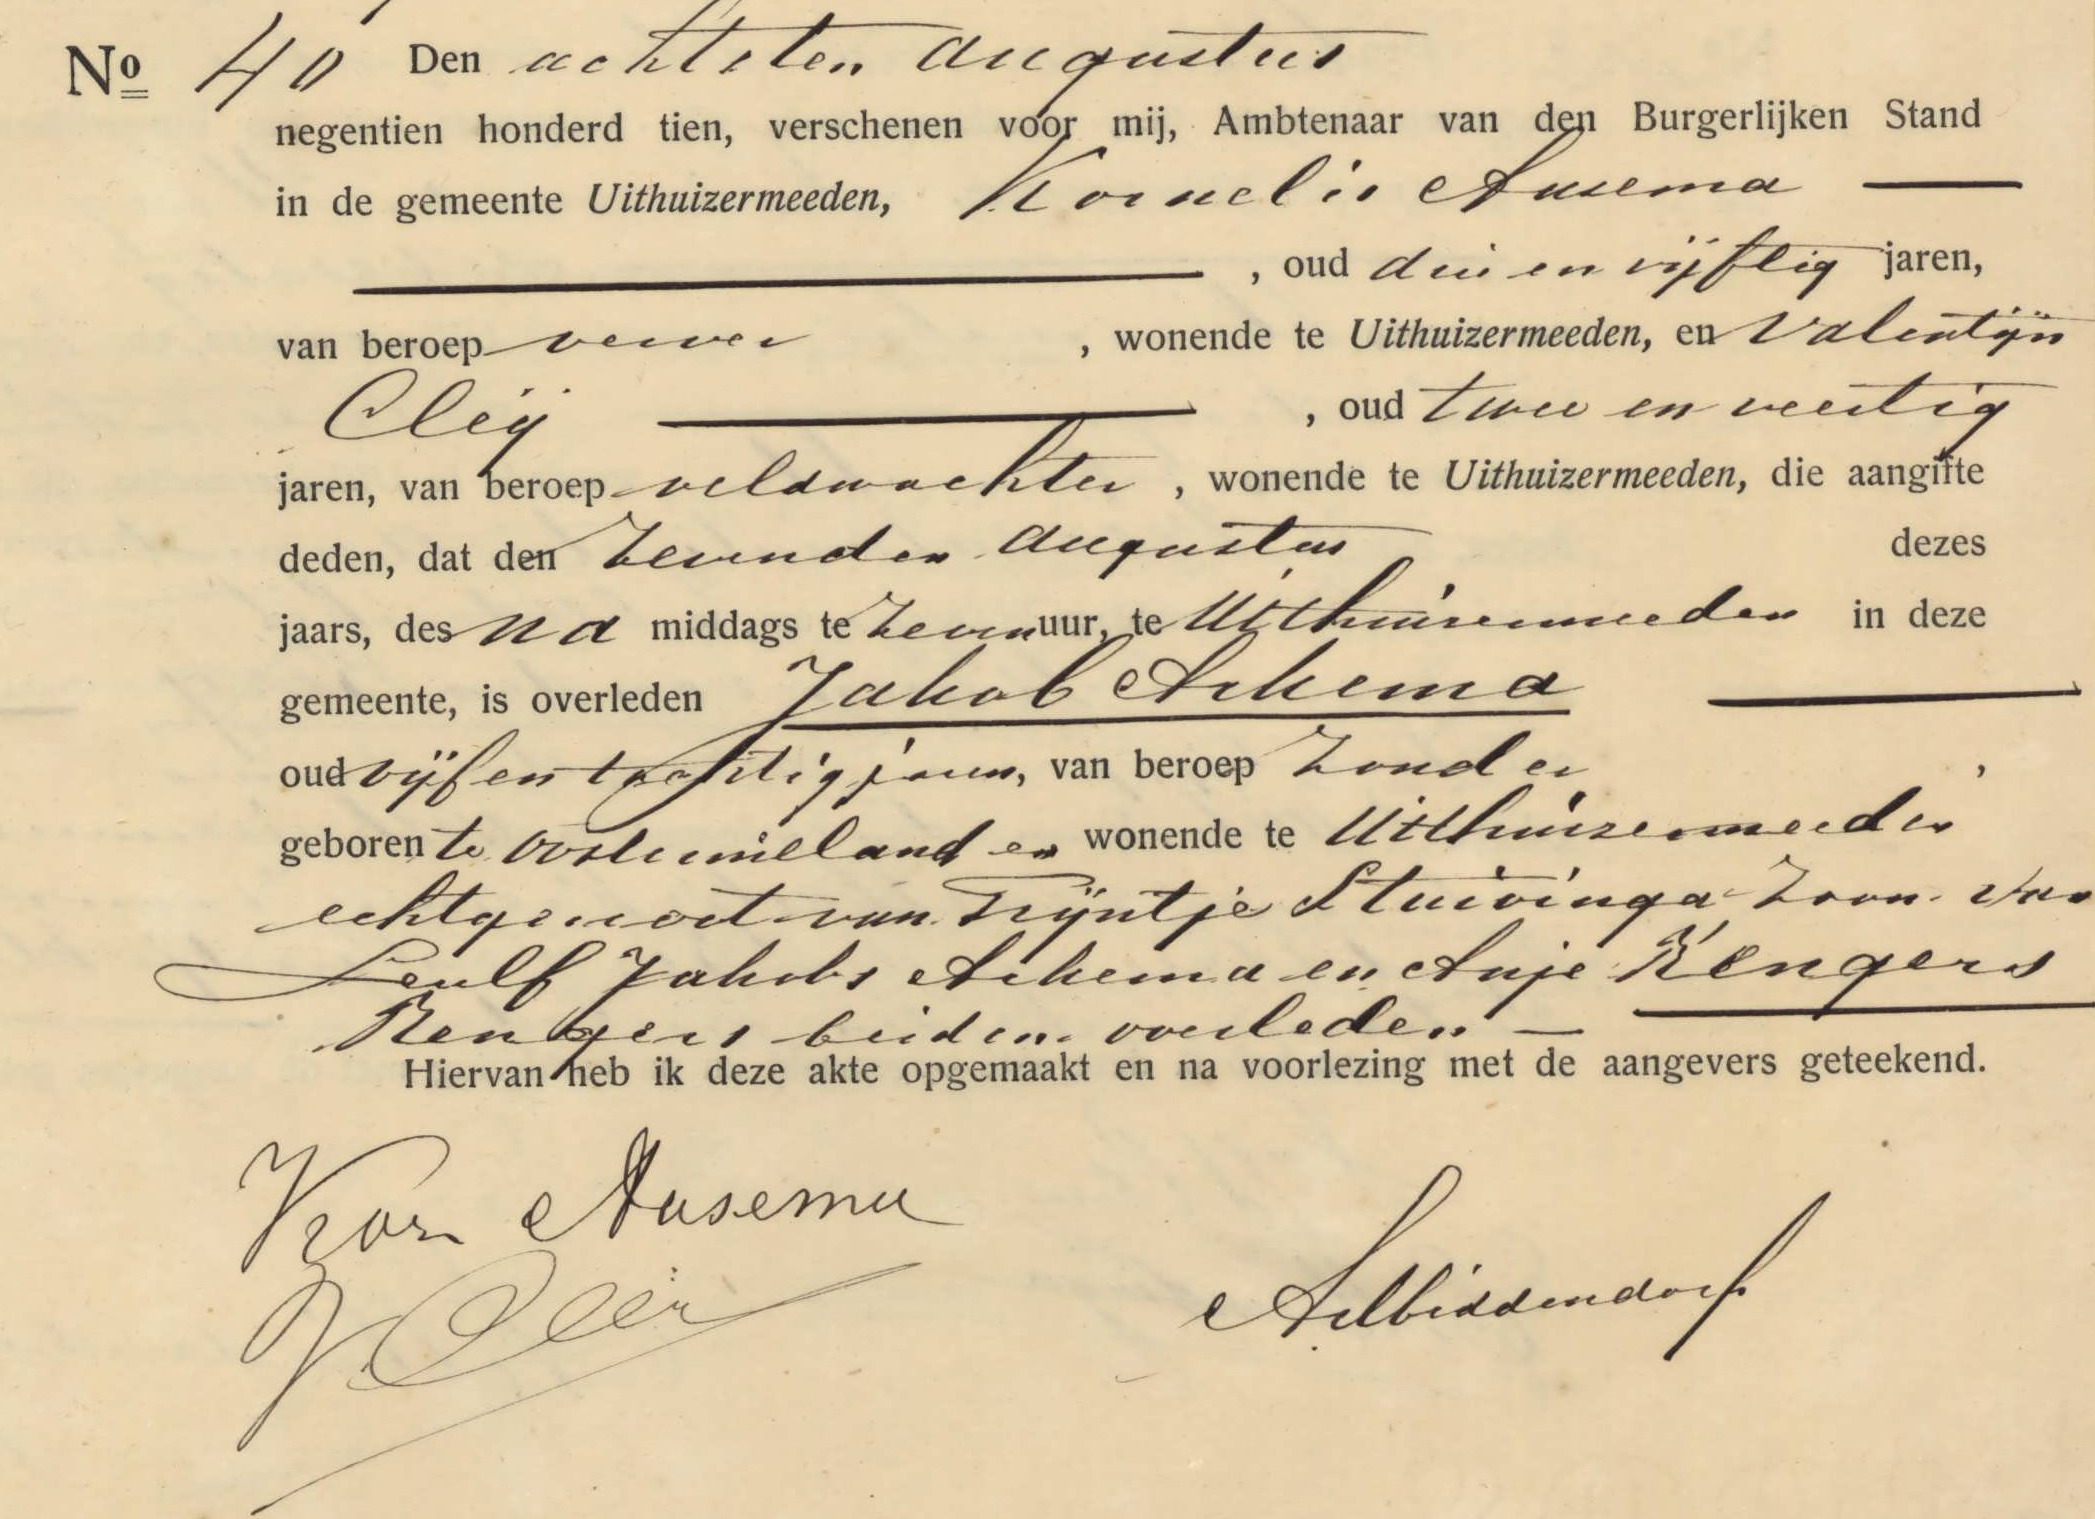 No 40 Den achtsten Augustus
negentien honderd tien, verschenen voor mij, Ambtenaar van den Burgerlijken Stand
in de gemeente Uithuizermeeden, Kornelis Ausema
, oud drie en vijftig jaren,
van beroep verver , wonende te Uithuizermeeden, en Valentijn
Cleij , oud twee en veertig
jaren, van beroep veldwachter , wonende te Uithuizermeeden, die aangifte
deden, dat den zevenden Augustus dezes
jaars, des na middags te zeven uur, te Uithuizermeeden in deze
gemeente, is overleden Jakob Arkema
oud vijf en tachtig jaren, van beroep zonder ,
geboren te Oosternieland en wonende te Uithuizermeeden
echtgenoot van Trijntje Stuivinga zoon van
Leulf Jakobs Arkema en Anje Rengers
Rengers beiden overleden
Hiervan heb ik deze akte opgemaakt en na voorlezing met de aangevers geteekend.
Kor Ausema
V. Cleij